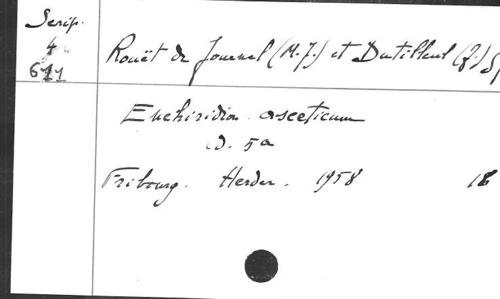 Scrip.
4
611
Rouët de Journel (M.-J.) et Dutilleul (J.) SJ
Enchiridion asceticum
ed. 5a
Fribourg. Herder. 1958 18